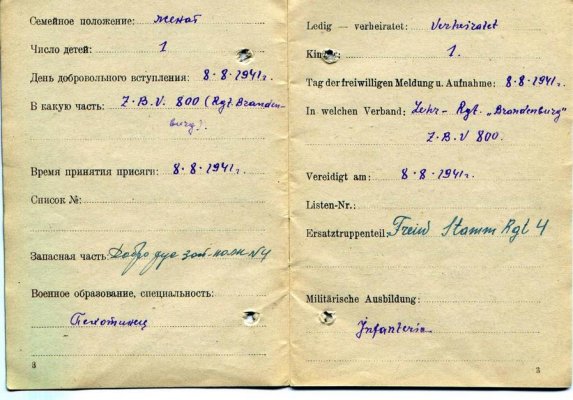 Семейное положение: женат
Число детей: 1
День добровольного вступления: 8·8·1941г.
В какую часть: Z.B.V. 800 (Rgt. Branden-
burg).
Время принятия присяги: 8·8·1941г.
Список №:
Запасная часть:
Военное образование, специальность:
Пехотинец
3
Ledig – verheiratet: Verheiratet
Kinder: 1.
Tag der freiwilligen Meldung u. Aufnahme: 8·8·1941г.
In welchen Verband: Lehr- Rgt. „Brandenburg"
Z.B.V 800.
Vereidigt am: 8·8·1941г.
Listen-Nr.:
Ersatztruppenteil: Freiw Stamm Rgt 4
Militärische Ausbildung:
Infanterie
3